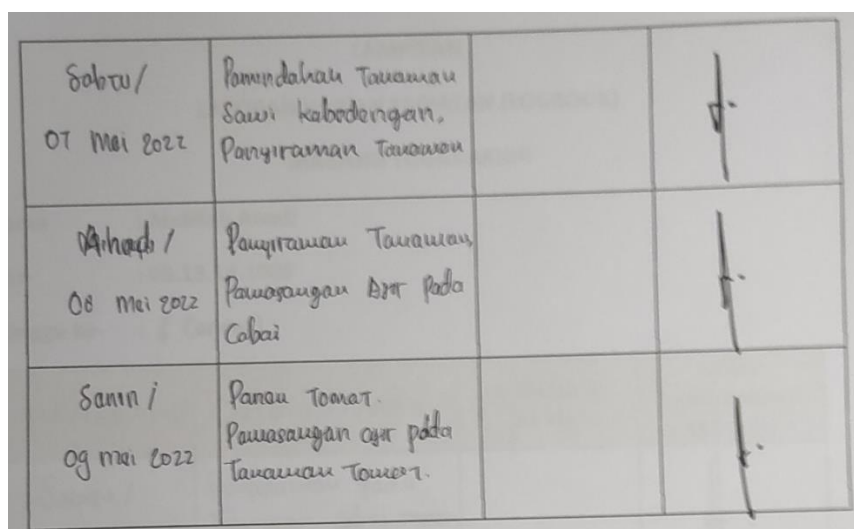 Sabtu/
07 Mei 2022
Pemindahan Tanaman
Sawi kebedengan,
Penyiraman Tanaman
Ahad /
08 Mei 2022
Penyiraman Tanaman,
Pemasangan Ajir Pada
Cabai
Senin /
09 mei 2022
Panen Tomat.
Pemasangan ajir pada
Tanaman Tomat.